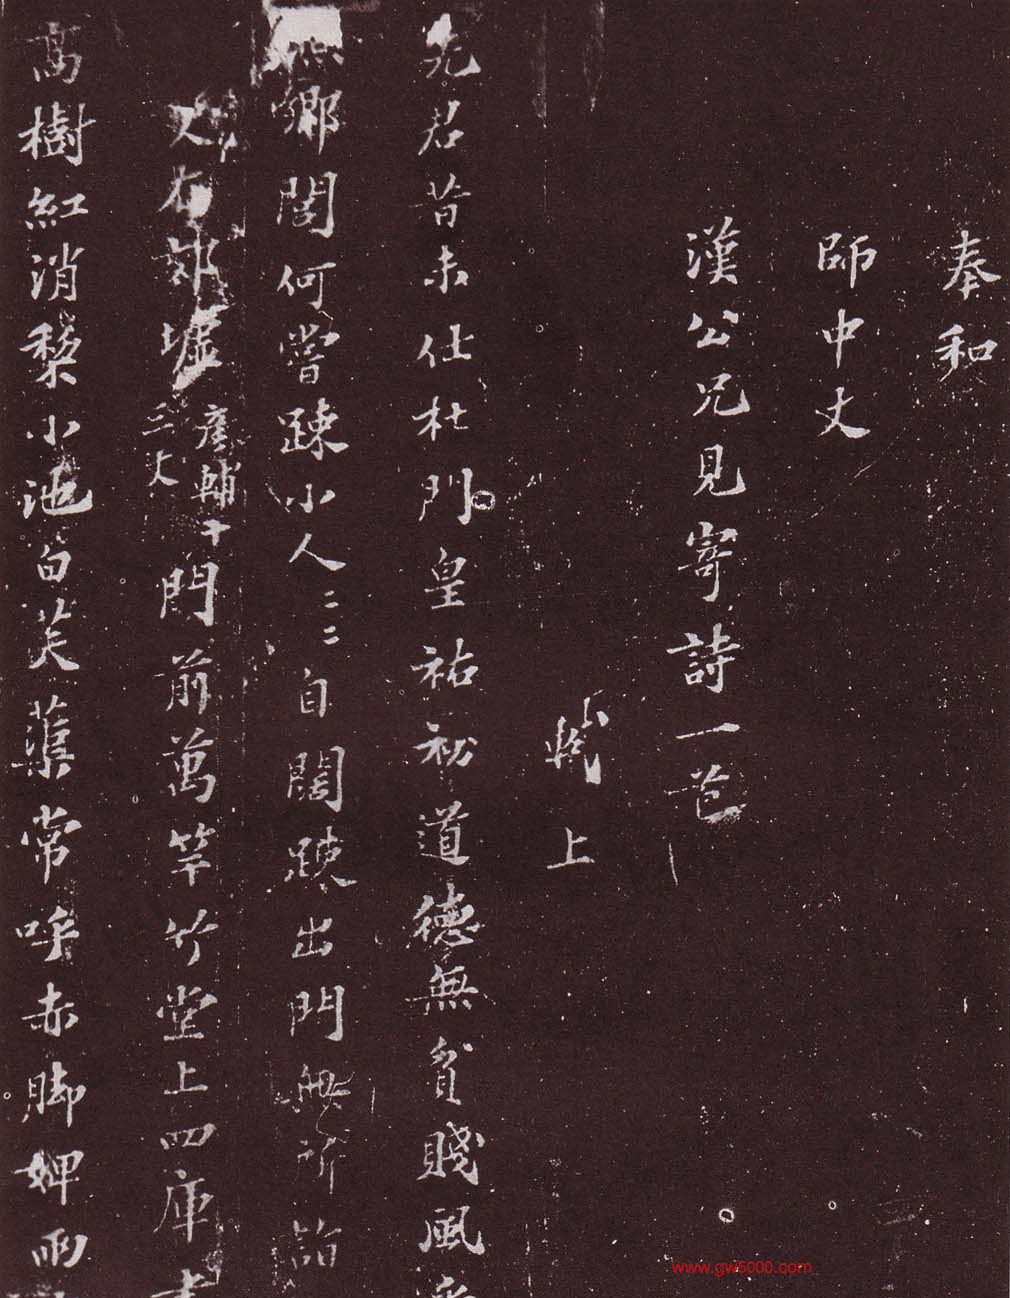 奉和
師中丈
漢公兄見寄詩一首
軾上
先君昔未仕杜門皇祐初道德無貧賤風采
照鄉閭何嘗踈小人〻〻自闊踈出門無所詣
郊墟彥輔十三丈門前萬竿竹堂上四庫書
高樹紅消梨小池白芙蕖常呼赤脚婢雨
www.gw5000.com